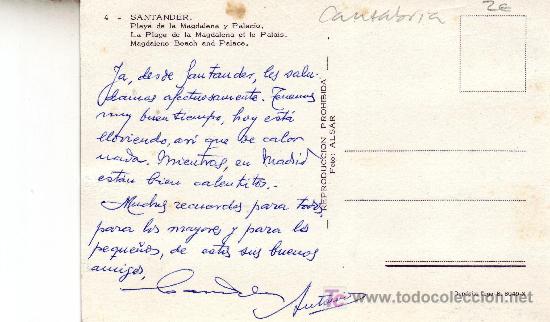 4 - SANTANDER.
Playa de la Magdalena y Palacio.
La Plage de la Magdalena et le Palais.
Magdalena Beach and Palace.
Cantabria
2€
Ya, desde Santander, les salu-
damos afectuosamente. Tenemos
muy buen tiempo, hoy está
lloviendo, así que de calor
nada. Mientras, en Madrid
están bien calentitos.
Muchos recuerdos para todos,
para los mayores y para los
pequeños, de estos sus buenos
amigos,
Antonio
REPRODUCCION PROHIBIDA
Foto: ALSAR
TC
www.todocoleccion.net